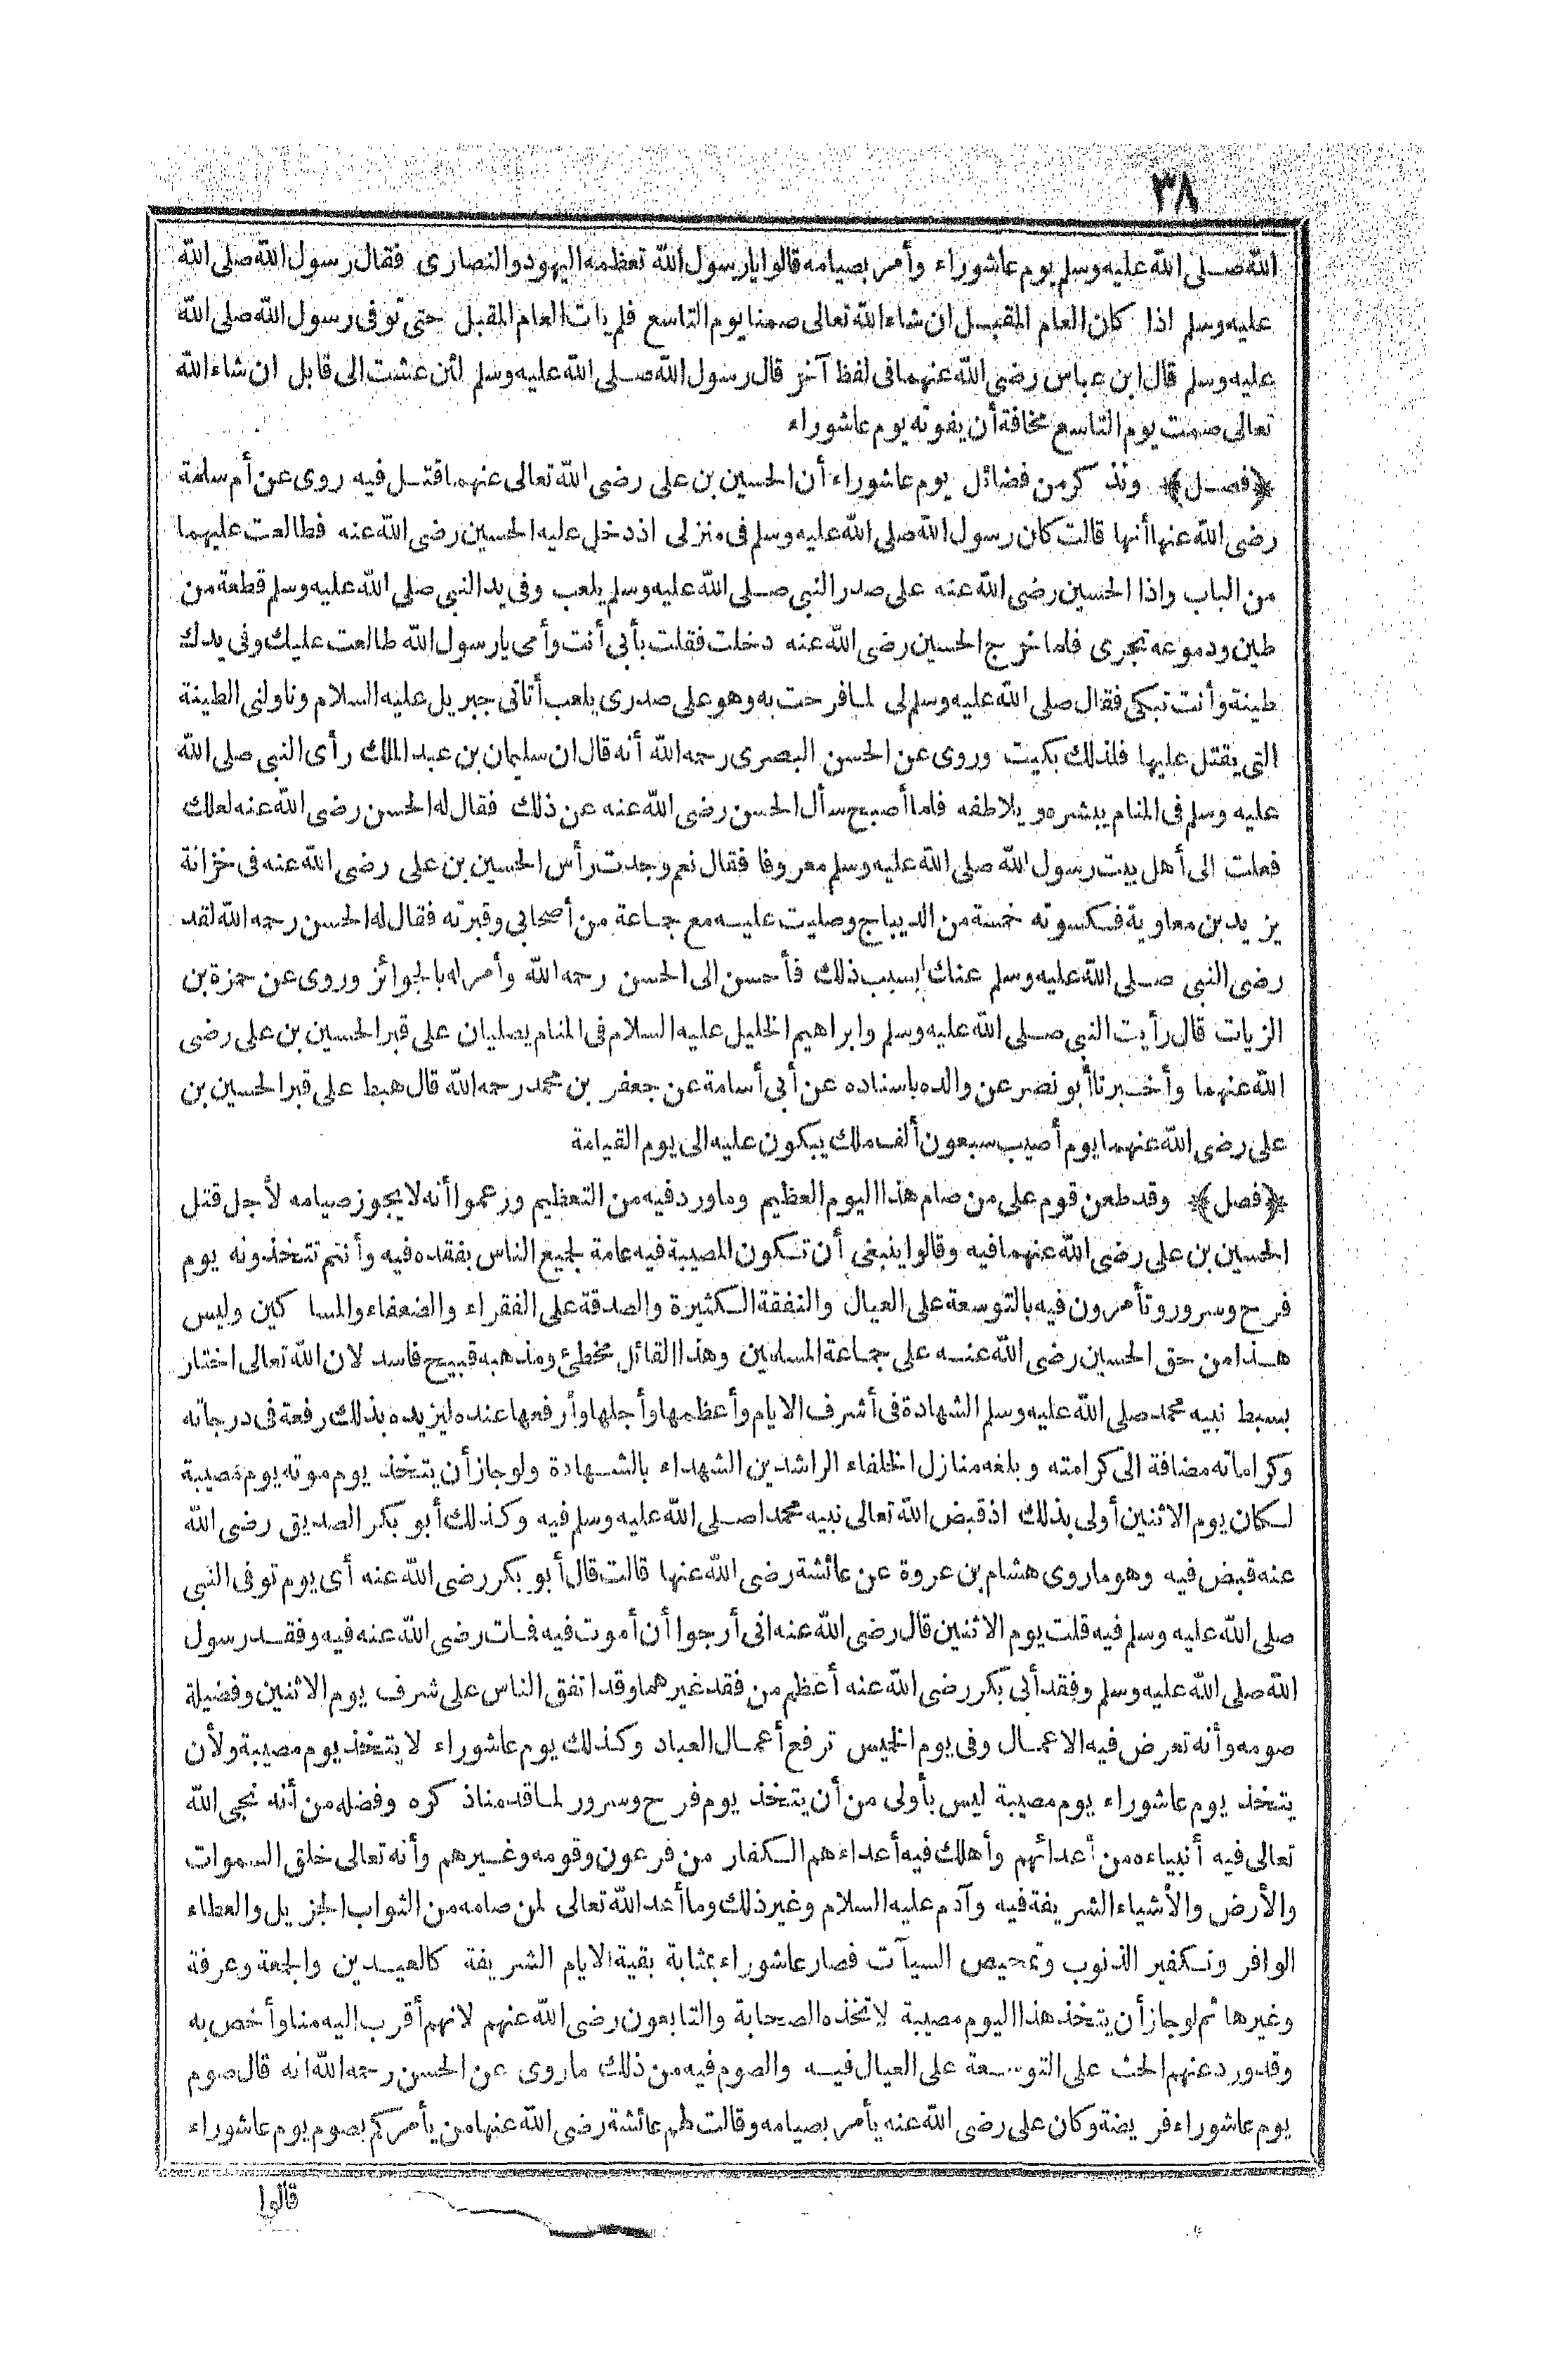 ٣٨
الله صلى الله عليه وسلم يوم عاشوراء وأمر بصيامه قالوا يارسول الله تعظمه اليهود والنصارى فقال رسول الله صلى الله
عليه وسلم اذا كان العام المقبل ان شاء الله تعالى صمنا يوم التاسع فلم يات العام المقبل حتى توفى رسول الله صلى الله
عليه وسلم قال ابن عباس رضى الله عنهما فى لفظ آخر قال رسول الله صلى الله عليه وسلم لئن عشت الى قابل ان شاء الله
تعالى صمت يوم التاسع مخافة أن يفوته يوم عاشوراء
﴿فصل﴾ ونذكر من فضائل يوم عاشوراء أن الحسين بن على رضى الله تعالى عنهما قتل فيه روى عن أم سلمة
رضى الله عنها أنها قالت كان رسول الله صلى الله عليه وسلم فى منزلى اذ دخل عليه الحسين رضى الله عنه فطالعت عليهما
من الباب واذا الحسين رضى الله عنه على صدر النبى صلى الله عليه وسلم يلعب وفى يد النبى صلى الله عليه وسلم قطعة من
طين ودموعه تجرى فلما خرج الحسين رضى الله عنه دخلت فقلت بأبى أنت وأمى يارسول الله طالعت عليك وفى يدك
طينة وأنت تبكى فقال صلى الله عليه وسلم لى لما فرحت به وهو على صدرى يلعب أتانى جبريل عليه السلام وناولنى الطينة
التى يقتل عليها فلذلك بكيت وروى عن الحسن البصرى رحمه الله أنه قال ان سليمان بن عبد الملك رأى النبى صلى الله
عليه وسلم فى المنام يبشره ويلاطفه فلما أصبح سأل الحسن رضى الله عنه عن ذلك فقال له الحسن رضى الله عنه لعلك
فعلت الى أهل بيت رسول الله صلى الله عليه وسلم معروفا فقال نعم وجدت رأس الحسين بن على رضى الله عنه فى خزانة
يزيد بن معاوية فكسوته خمسة من الديباج وصليت عليه مع جماعة من أصحابى وقبرته فقال له الحسن رحمه الله لقد
رضى النبى صلى الله عليه وسلم عنك بسبب ذلك فأحسن الى الحسن رحمه الله وأمر له بالجوائز وروى عن حمزة بن
الزيات قال رأيت النبى صلى الله عليه وسلم وابراهيم الخليل عليه السلام فى المنام يصليان على قبر الحسين بن على رضى
الله عنهما وأخبرنا أبو نصر عن والده باسناده عن أبى أسامة عن جعفر بن محمد رحمه الله قال هبط على قبر الحسين بن
على رضى الله عنهما يوم أصيب سبعون ألف ملك يبكون عليه الى يوم القيامة
﴿فصل﴾ وقد طعن قوم على من صام هذا اليوم العظيم وما ورد فيه من التعظيم وزعموا أنه لا يجوز صيامه لأجل قتل
الحسين بن على رضى الله عنهما فيه وقالوا ينبغى أن تكون المصيبة فيه عامة لجميع الناس بفقده فيه وأنتم تتخذونه يوم
فرح وسرور وتأمرون فيه بالتوسعة على العيال والنفقة الكثيرة والصدقة على الفقراء والضعفاء والمساكين وليس
هذا من حق الحسين رضى الله عنه على جماعة المسلمين وهذا القائل مخطئ ومذهبه قبيح فاسد لان الله تعالى اختار
بسبط نبيه محمد صلى الله عليه وسلم الشهادة فى أشرف الايام وأعظمها وأجلها وأرفعها عنده ليزيده بذلك رفعة فى درجاته
وكراماته مضافة الى كرامته وبلغه منازل الخلفاء الراشدين الشهداء بالشهادة ولو جاز أن يتخذ يوم موته يوم مصيبة
لكان يوم الاثنين أولى بذلك اذ قبض الله تعالى نبيه محمدا صلى الله عليه وسلم فيه وكذلك أبو بكر الصديق رضى الله
عنه قبض فيه وهو ماروى هشام بن عروة عن عائشة رضى الله عنها قالت قال أبو بكر رضى الله عنه أى يوم توفى النبى
صلى الله عليه وسلم فيه قلت يوم الاثنين قال رضى الله عنه انى أرجوا أن أموت فيه فمات رضى الله عنه فيه وفقد رسول
الله صلى الله عليه وسلم وفقد أبى بكر رضى الله عنه أعظم من فقد غيرهما وقد اتفق الناس على شرف يوم الاثنين وفضيلة
صومه وأنه تعرض فيه الاعمال وفى يوم الخميس ترفع أعمال العباد وكذلك يوم عاشوراء لا يتخذ يوم مصيبة ولأن
يتخذ يوم عاشوراء يوم مصيبة ليس بأولى من أن يتخذ يوم فرح وسرور لما قدمنا ذكره وفضله من أنه نجى الله
تعالى فيه أنبياءه من أعدائهم وأهلك فيه أعداءهم الكفار من فرعون وقومه وغيرهم وأنه تعالى خلق السموات
والأرض والأشياء الشريفة فيه وآدم عليه السلام وغير ذلك وما أعد الله تعالى لمن صامه من الثواب الجزيل والعطاء
الوافر وتكفير الذنوب وتمحيص السيآت فصار عاشوراء بمثابة بقية الايام الشريفة كالعيدين والجمعة وعرفة
وغيرها ثم لو جاز أن يتخذ هذا اليوم مصيبة لاتخذه الصحابة والتابعون رضى الله عنهم لانهم أقرب اليه منا وأخص به
وقد ورد عنهم الحث على التوسعة على العيال فيه والصوم فيه من ذلك ماروى عن الحسن رحمه الله انه قال صوم
يوم عاشوراء فريضة وكان على رضى الله عنه يأمر بصيامه وقالت لهم عائشة رضى الله عنها من يأمركم بصوم يوم عاشوراء
قالوا